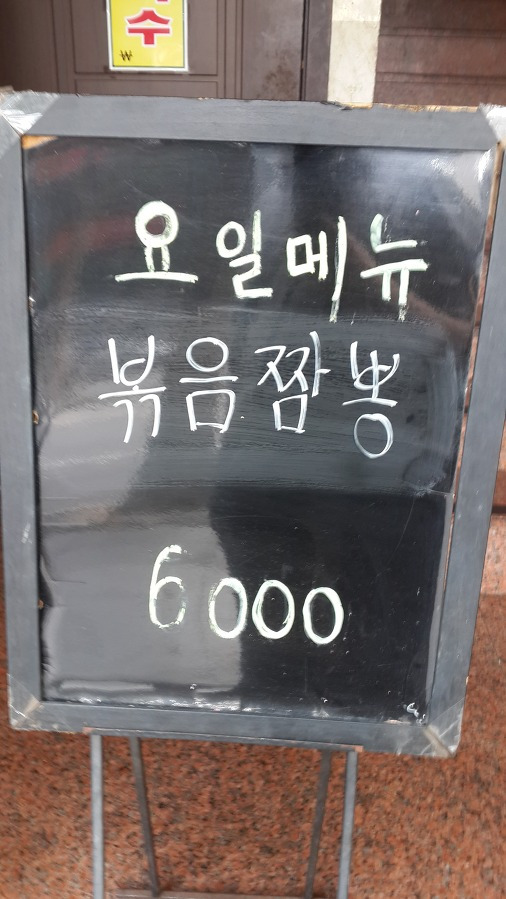 수
₩
요일메뉴
볶음짬뽕
6000